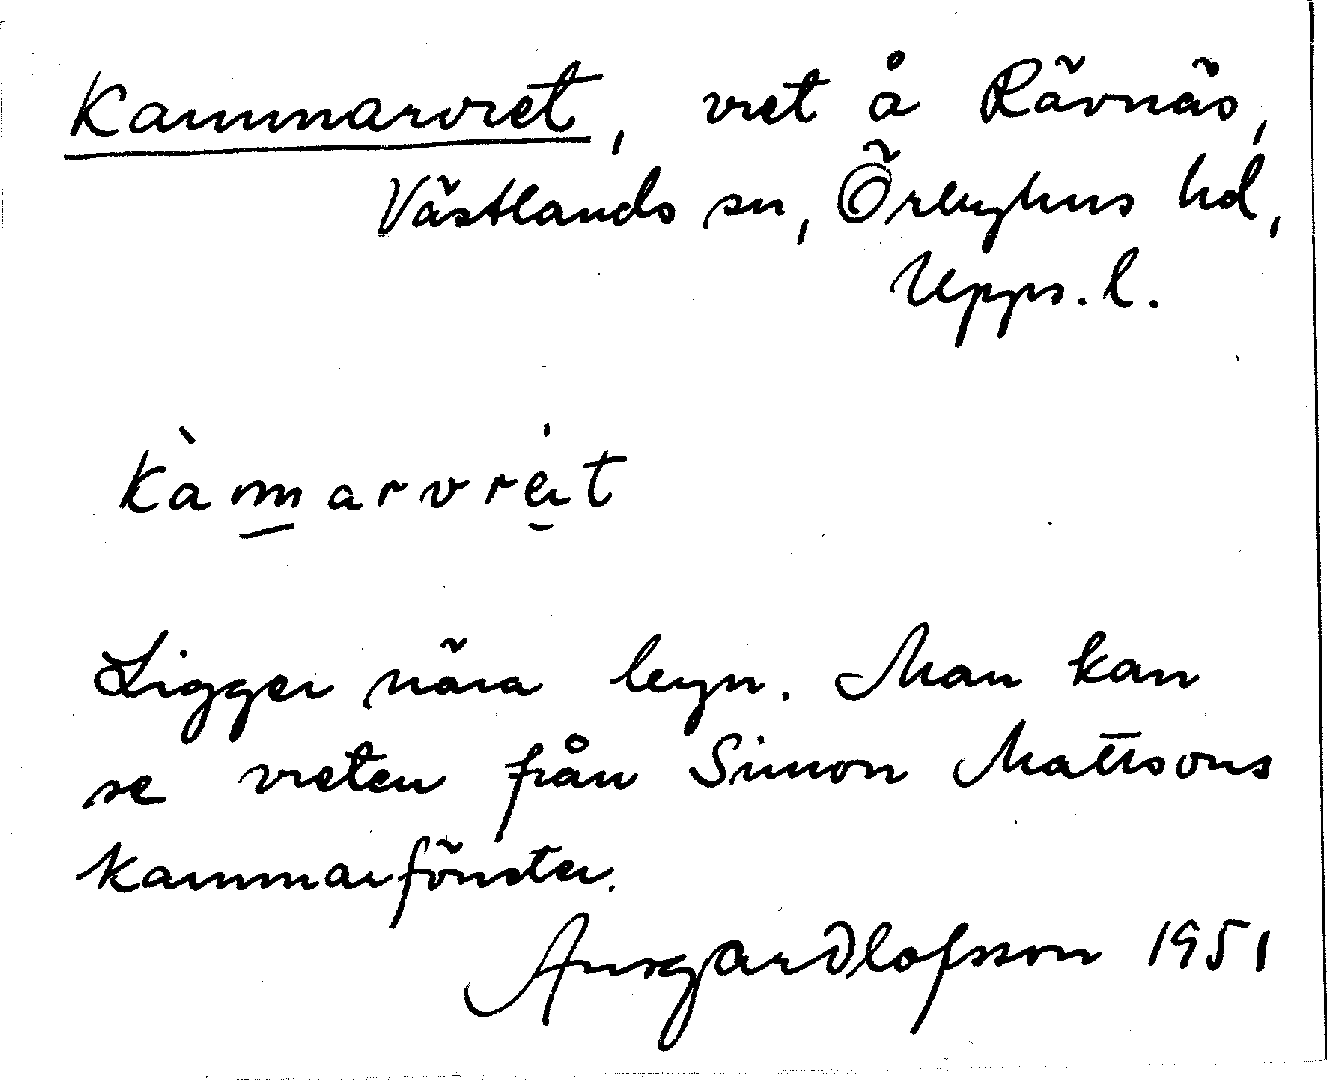 Kammarvret, vret å Rävnäs,
Västlands sn, Örbyhus hd,
Upps. l.
kàmarvrèt
Ligger nära byn. Man kan
se vreten från Simon Mattsons
kammarfönster.
Ansgar Olofsson 1951